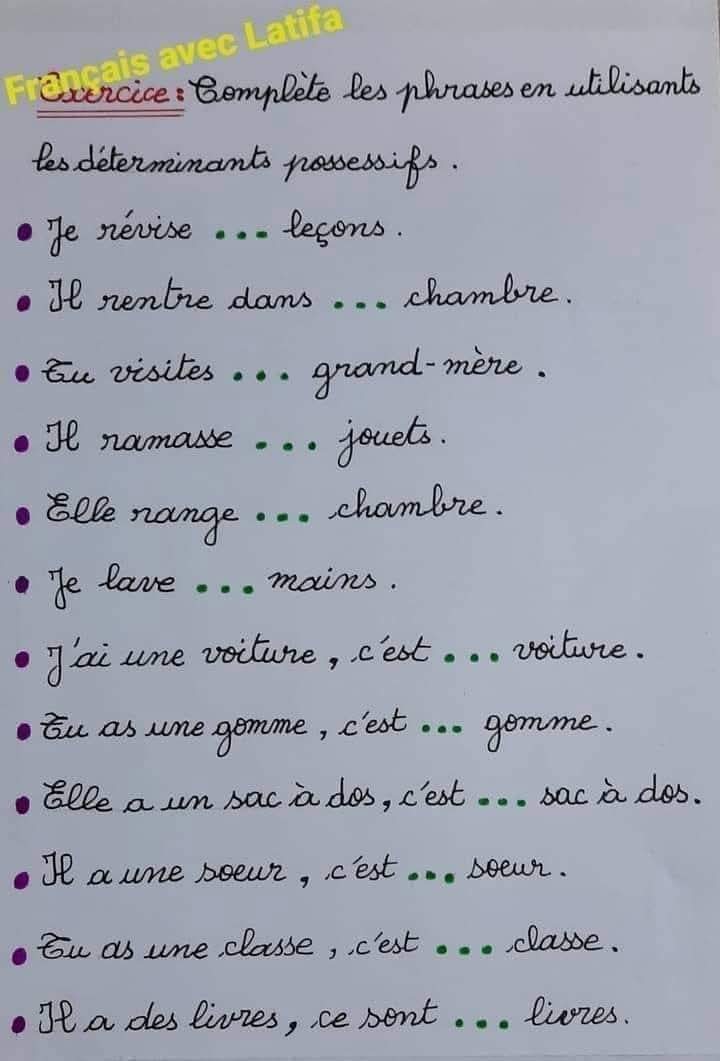 Français avec Latifa
Exercice : Complète les phrases en utilisants
les déterminants possessifs .
• Je révise ... leçons .
• Il rentre dans ... chambre .
• Tu visites ... grand-mère .
• Il ramasse ... jouets .
• Elle range ... chambre .
• Je lave ... mains .
• J'ai une voiture , c'est ... voiture .
• Tu as une gomme , c'est ... gomme .
• Elle a un sac à dos , c'est ... sac à dos .
• Il a une soeur , c'est ... soeur .
• Tu as une classe , c'est ... classe .
• Il a des livres , ce sont ... livres .